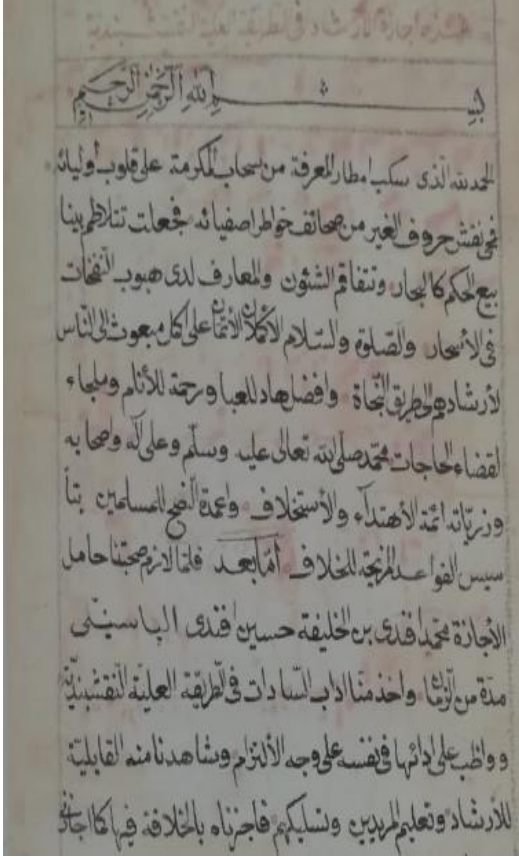 هذه اجازة الأرشاد فى الطريقة العلية النقشبندية
بسم الله الرحمن الرحيم
الحمد لله الذى سكب امطار المعرفة من سحاب المكرمة على قلوب أوليائه
فمحى نقش حروف الغير من صحائف خواطر اصفيائه فجعلت تتلاطم ينا
بيع الحكم كالبحار وتتفاقم الشئون والمعارف لدى هبوب النفحات
فى الأسحار والصلوة والسلام الأكملان الأتمان على كل مبعوث الى الناس
لأرشادهم الى طريق النجاة وافضل هاد للعبا ورحمة للأنام وملجاء
لقضاء الحاجات محمد صلى الله تعالى عليه وسلم وعلى آله وصحابه
وزرياته ائمة الأهتداء والأستخلاف واعمدة النصح للمسلمين بتأ
سيس القواعد المزيحة للخلاف أما بعد فلما لازم صحبتنا حامل
الأجازة محمد افندى بن الخليفة حسين افندى الياسينى
مدة من الزمان واخذ منا اداب السادات فى الطريقة العلية النقشبندية
وواظب على ادائها فى نفسه على وجه الألتزام وشاهدنا منه القابلية
للأرشاد وتعليم المريدين وتسليكهم فاجزناه بالخلافة فيها كما اجازنى